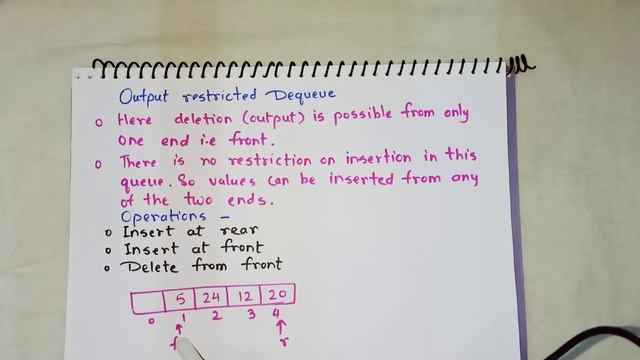 Output restricted Dequeue
o Here deletion (output) is possible from only
one end i.e front.
o There is no restriction on insertion in this
queue. So values can be inserted from any
of the two ends.
Operations -
o Insert at rear
o Insert at front
o Delete from front
5 24 12 20
0 1 2 3 4
f r